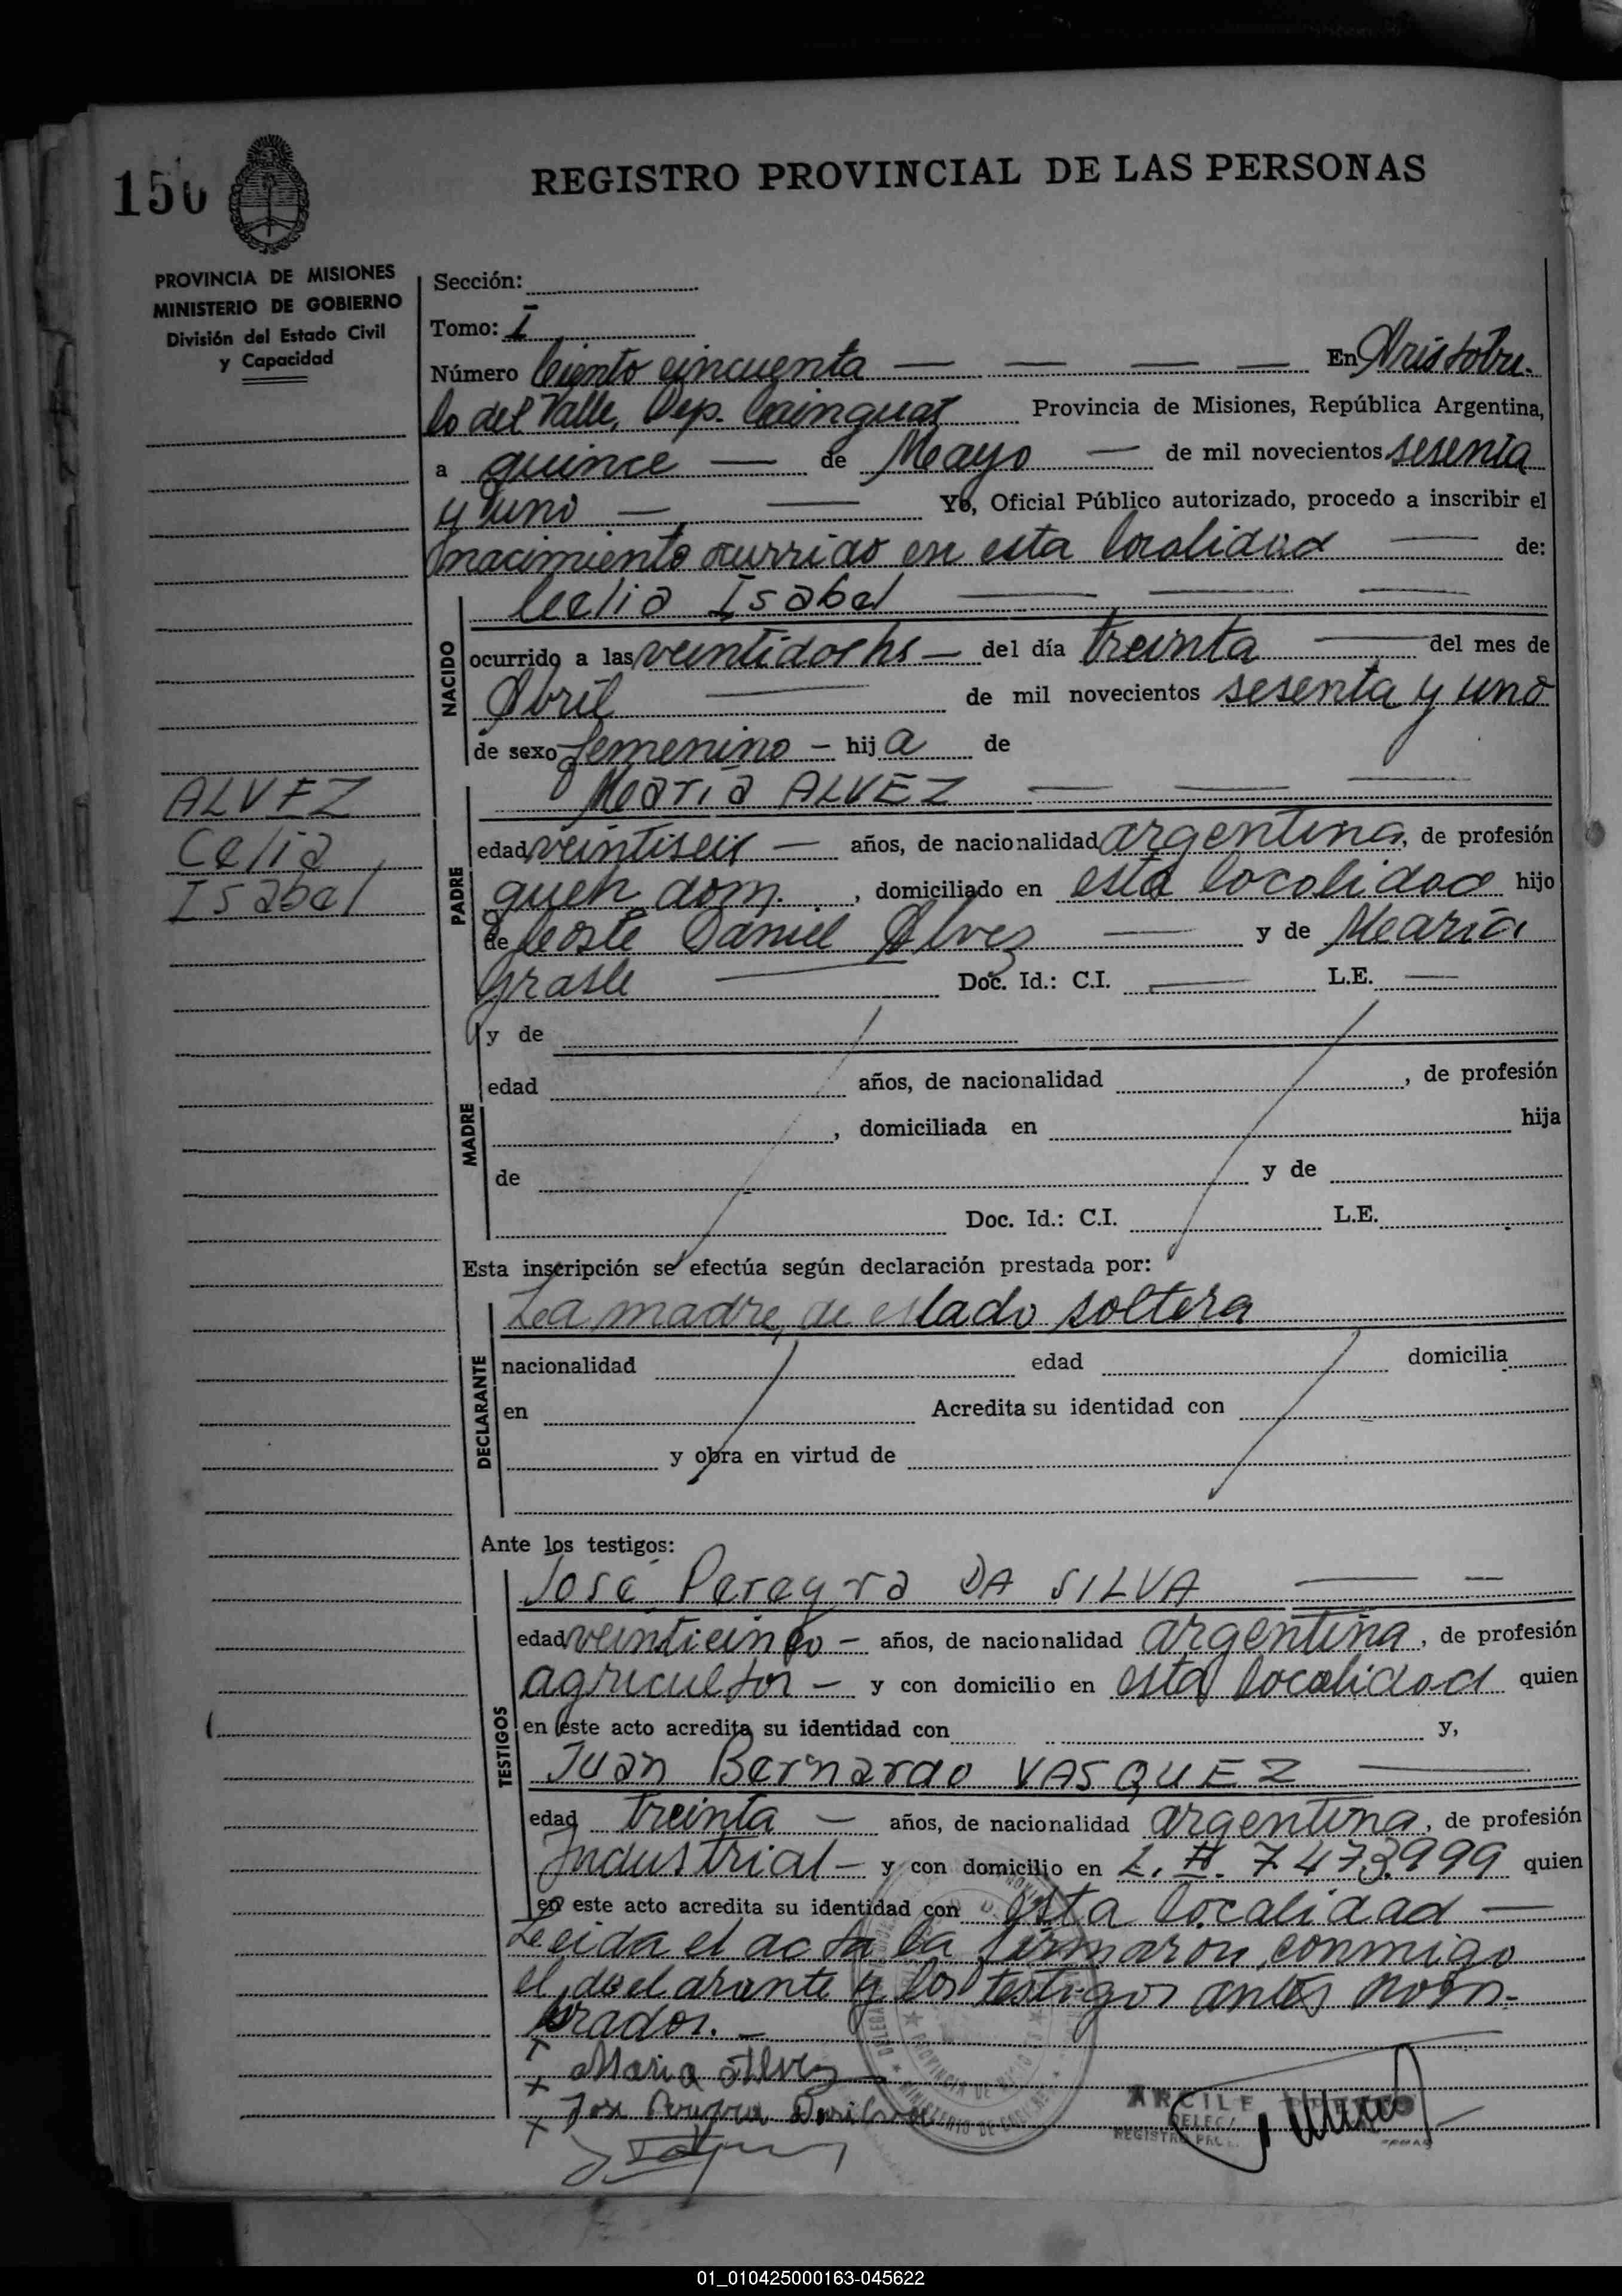 150
REGISTRO PROVINCIAL DE LAS PERSONAS
PROVINCIA DE MISIONES
MINISTERIO DE GOBIERNO
División del Estado Civil
y Capacidad
Sección:
Tomo: I
Número Ciento cincuenta — — — — En Aristobu-
lo del Valle, Dep. Cainguas Provincia de Misiones, República Argentina,
a quince — de Mayo — de mil novecientos sesenta
y uno — — Yo, Oficial Público autorizado, procedo a inscribir el
nacimiento ocurrido en esta localidad — de:
NACIDO
Celia Isabel — — —
ocurrido a las veintidos hs — del día treinta — del mes de
Abril — de mil novecientos sesenta y uno
de sexo femenino — hij a de
ALVEZ
Celia
Isabel
PADRE
María ALVEZ — — —
edad veintiseis — años, de nacionalidad argentina, de profesión
queh. dom. , domiciliado en esta localidad hijo
de Daniel Alvez — y de María
— Doc. Id.: C.I. — L.E. —
MADRE
y de
edad años, de nacionalidad , de profesión
, domiciliada en hija
de y de
Doc. Id.: C.I. L.E.
Esta inscripción se efectúa según declaración prestada por:
DECLARANTE
La madre, de estado soltera
nacionalidad edad domicilia
en Acredita su identidad con
y obra en virtud de
Ante los testigos:
TESTIGOS
José Pereyra DA SILVA — —
edad veinticinco — años, de nacionalidad argentina, de profesión
agricultor — y con domicilio en esta localidad quien
en este acto acredita su identidad con y,
Juan Bernardo VASQUEZ —
edad treinta — años, de nacionalidad argentina, de profesión
Industrial — y con domicilio en L. E. 7473.999 quien
en este acto acredita su identidad con esta localidad —
Leida el acta la firmaron conmigo
el declarante y los testigos antes nom-
brados. —
x Maria Alvez
x Jose Pereyra Dasilva
x
ARCILE
DELEG
REGISTRO
01_010425000163-045622